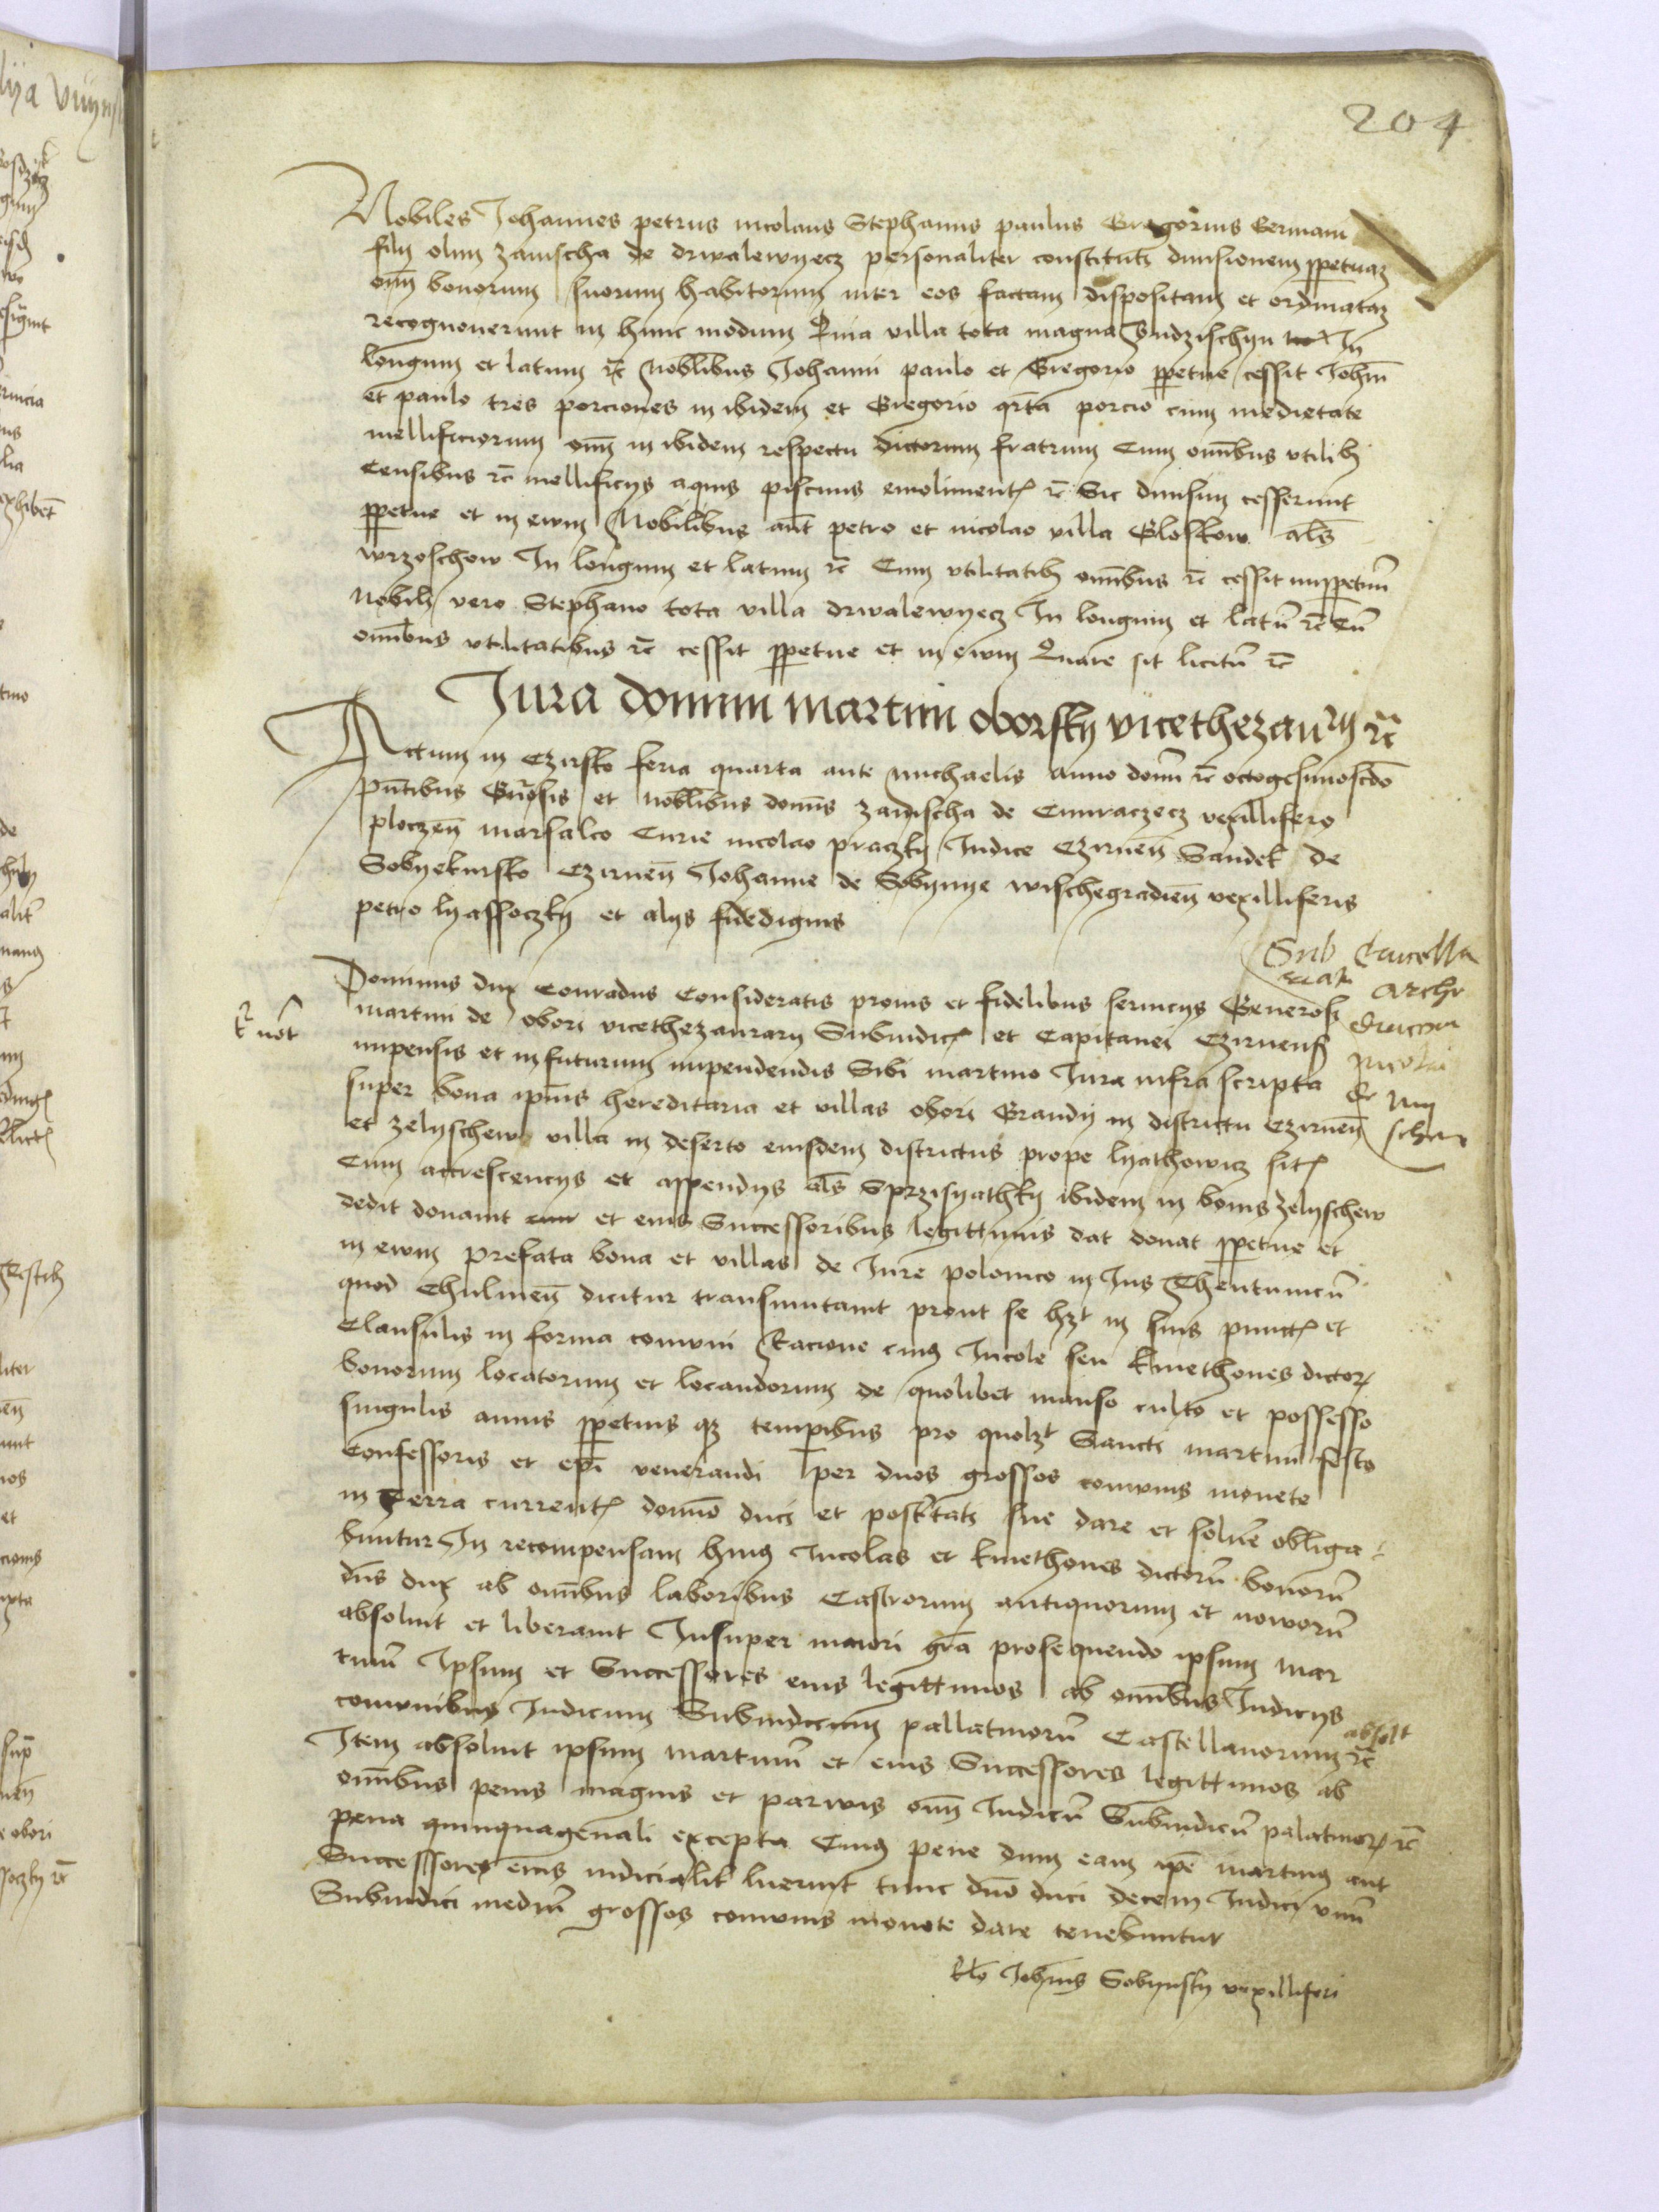 204
Nobiles Johannes petrus nicolaus Stephanus paulus Gregorius Germani
filij olim zawischa de drwalewyecz personaliter constituti diuisionem ppetuaʒ
oīm bonorum suorum habitorum inter eos factam dispositam et ordinataʒ
recognouerunt in hunc modum Quia villa tota magna Budzischyn In
longum et latum rc̄ Noblibus Johanni paulo et Gregorio ppetue cessit Johīni
et paulo tres porciones in ibidem et Gregorio qrta porcio cum medietate
mellificiorum oīm in ibidem respectu dictorum fratrum Cum omībus vtilibʒ
Censibus rc̄ mellificijs aquis piscinis emolimentis rc̄ Sic diuisim cesserunt
ppetue et in ewm Nobilibus aūt petro et nicolao villa Gloskow als̄
wrzoschow In longum et latum rc̄ Cum vtilitatibʒ omībus rc̄ cessit inppetuū
Nobili vero Stephano tota villa drwalewyecz In longum et latū rc̄ Cū
omībus vtilitatibus rc̄ cessit ppetue et in ewm Quare sit licitū rc̄
Jura domini martini oborsky vicethezaurij rc̄
Actum in Czirsko feria quarta ante michaelis Anno domī rc̄ octogesimoscdo
pn̄tibus Gn̄osis et noblibus domīs zawischa de Cmiraczecz vexillifero
ploczen̄ marsalco Curie nicolao praczky Judice Czirnen̄ Sandek de
Sobyekursko Czirnen̄ Johanne de Sobynye wischegradien̄ vexilliferis
petro lyassoczky et alijs fidedignis
Sub Cancella
archi
nicolai
Dominus dux Conradus Consideratis pronis et fidelibus seruicijs Generosi
martini de obori vicethezaurarij Subiudicis et Capitanei Czirnensis
impensis et in futurum impendendis Sibi martino Jura infra scripta
super bona ipīus hereditaria et villas obori Brandy in districtu Czirnen̄
et zelyschew villa in deserto eiusdem districtus prope lyathowicz sitis
Cum accrescencijs et appendijs als̄ Sprzisyathky ibidem in bonis zelyschew
dedit donauit et eius Successoribus legittimis dat donat ppetue et
in ewm prefata bona et villas de Jure polonico in Jus Theutunicū
quod Chulmen̄ dicitur transmutauit prout se hʒt in suis punctis et
Clausulis in forma comuni Racione cuius Jncole seu kmethones dictorum
bonorum locatorum et locandorum de quolibet manso culto et possesso
singulis annis ppetuis qʒ tempibus pro quolʒt Sancti martini festo
Confessoris et epī venerandi per duos grossos comunis monete
in Terra currentis domīo duci et posteritati sue dare et soluere obliga
buntur In recompensam huius Jncolas et kmethones dictorū bonorū
dn̄s dux ab omībus laboribus Castrorum antiquorum et noworū
absoluit et liberauit Jnsuper maiori gr̄a prosequendo ipsum mar
tinū Jpsum et Successores eius legittimos ab omībus Judicijs
comunibus Judicum Subiudicum pallatinorū Castellanorum rc̄ absolt
Jtem absoluit ipsum martinū et eius Successores legittimos ab
omībus penis magnis et parwis oīm Judicū Subiudicū palatinorum rc̄
pena quinquagenali excepta Cuius pene dum eam ipē martinus aut
Successores eius iudicialiter luerint tunc dn̄o duci decem Judici vnū
Subiudici mediū grossos comunis monete dare tenebuntur
Rlo Johīnis Sobynsky vexilliferi